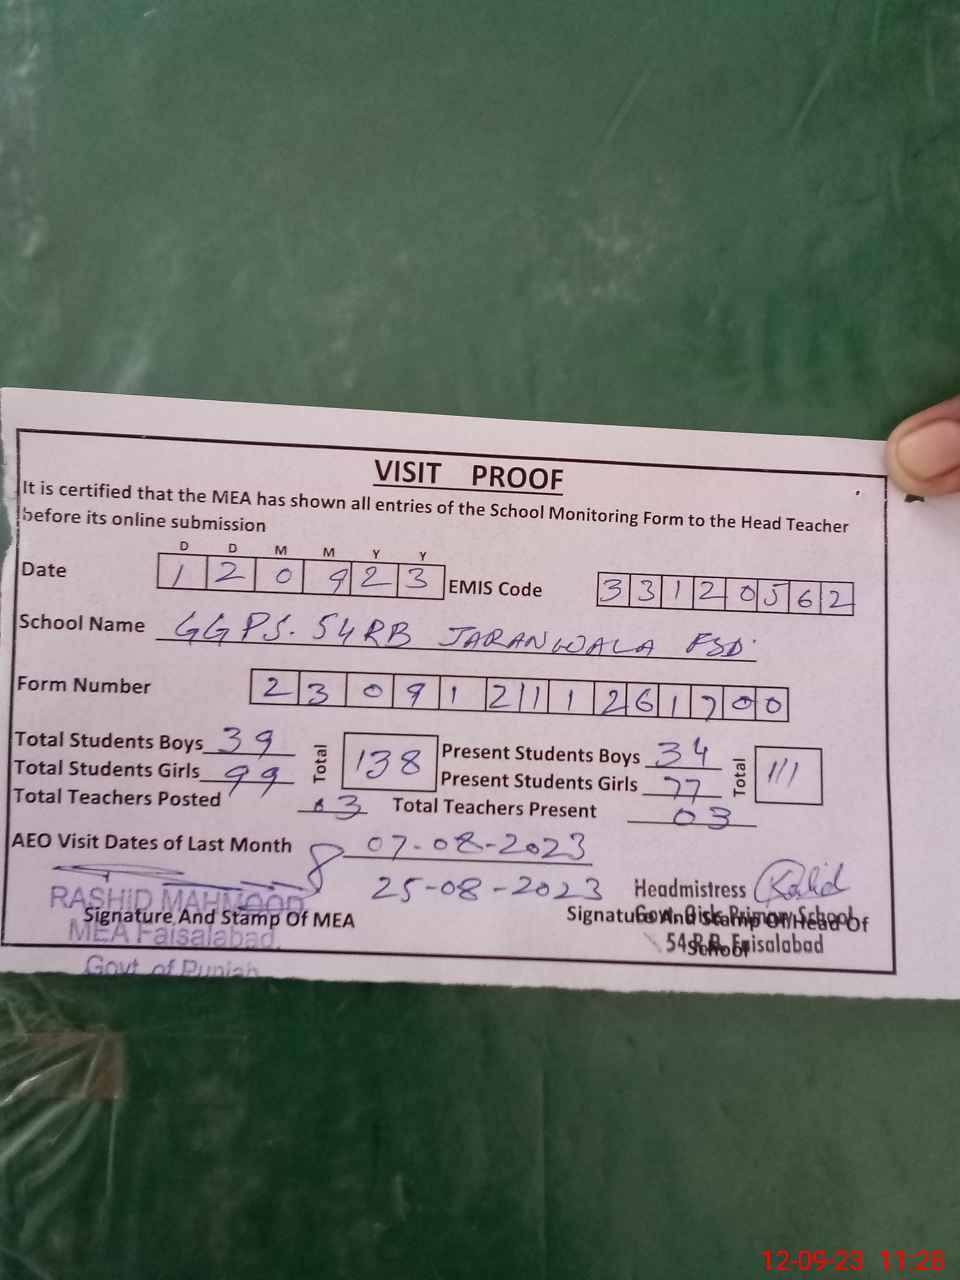 VISIT PROOF
It is certified that the MEA has shown all entries of the School Monitoring Form to the Head Teacher
before its online submission
D D M M Y Y
Date 1 2 0 9 2 3 EMIS Code 3 3 1 2 0 5 6 2
School Name GGPS. 54RB JARANWALA FSD
Form Number 2 3 0 9 1 2 1 1 2 6 1 7 0 0
Total Students Boys 39 Total 138 Present Students Boys 34 Total 111
Total Students Girls 99 Present Students Girls 77
Total Teachers Posted 03 Total Teachers Present 03
AEO Visit Dates of Last Month 07-08-2023
25-08-2023
RASHID MAHMOOD Headmistress
Signature And Stamp Of MEA Signature And Stamp Of Head Of
School
MEA Faisalabad. Govt. Girls Primary School
Govt of Punjab 54 R.B. Faisalabad
12-09-23 11:28